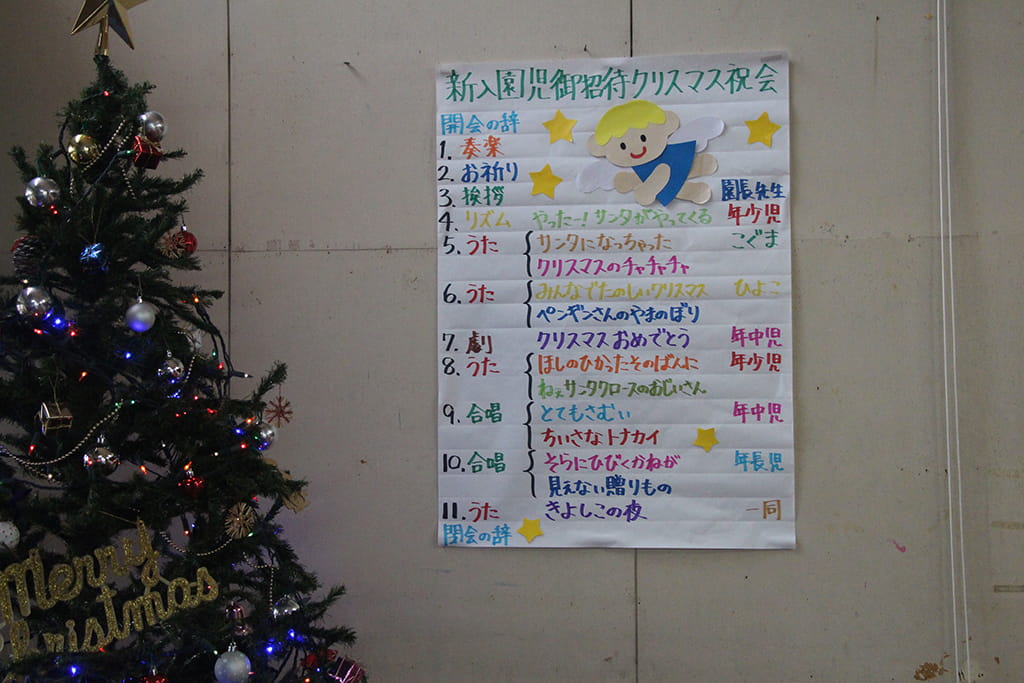 新入園児御招待クリスマス祝会
開会の辞
1. 奏楽
2. お祈り
3. 挨拶 園長先生
4. リズム やったー!サンタがやってくる 年少児
5. うた サンタになっちゃった こぐま
クリスマスのチャチャチャ
6. うた みんなでたのしいクリスマス ひよこ
ペンギンさんのやまのぼり
7. 劇 クリスマスおめでとう 年中児
8. うた ほしのひかったそのばんに 年少児
ねぇサンタクロースのおじいさん
9. 合唱 とてもさむい 年中児
ちいさなトナカイ
10. 合唱 そらにひびくかねが 年長児
見えない贈りもの
11. うた きよしこの夜 一同
閉会の辞
Merry
Christmas